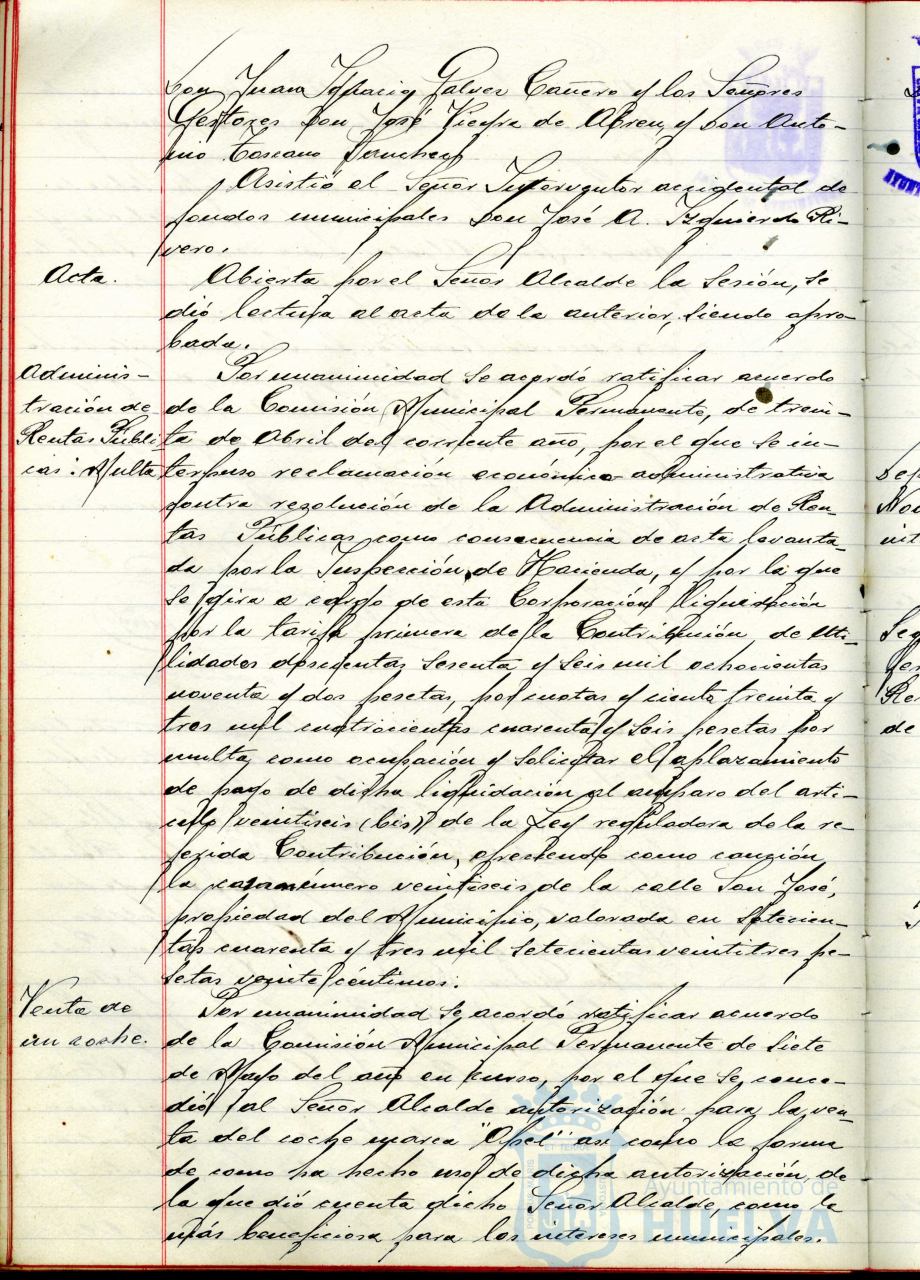 Don Juan Ignacio Galvez Cañero y los Señores
Gestores Don José Vieyra de Abreu, y Don Anto-
nio Toscano Sanchez
Asistió el Señor Interventor accidental de
fondos municipales Don José A. Izquierdo Ri-
vero.
Acta.
Abierta por el Señor Alcalde la Sesión, se
dió lectura al acta de la anterior, siendo apro-
bada.
Adminis-
tración de
Rentas Públi-
cas: Multa
Por unanimidad se acordó ratificar acuerdo
de la Comisión Municipal Permanente, de trein-
ta de Abril del corriente año, por el que se in-
terpuso reclamación económico administrativa
contra resolución de la Administración de Ren-
tas Públicas como consecuencia de acta levanta-
da por la Inspección de Hacienda, y por la que
se gira a cargo de esta Corporación liquidación
por la tarifa primera de la Contribución, de Uti-
lidades doscientas sesenta y seis mil ochocientas
noventa y dos pesetas, por cuotas y ciento treinta y
tres mil cuatrocientas cuarenta y seis pesetas por
multa, como ocupación y solicitar el aplazamiento
de pago de dicha liquidación al amparo del arti-
culo veintiseis (bis) de la Ley reguladora de la re-
ferida Contribución, ofreciendo como caución
la casa número veintiseis de la calle San José,
propiedad del Municipio, valorada en setecien-
tas cuarenta y tres mil setecientas veintitres pe-
setas veinte céntimos.
Venta de
un coche.
Por unanimidad se acordó ratificar acuerdo
de la Comisión Municipal Permanente de siete
de Mayo del año en curso, por el que se conce-
dió al Señor Alcalde autorización para la ven-
ta del coche marca "Opel" así como la forma
de como ha hecho uso de dicha autorización, de
la que dió cuenta dicho Señor Alcalde, como la
más beneficiosa para los intereses municipales.
Ayuntamiento de
HUELVA